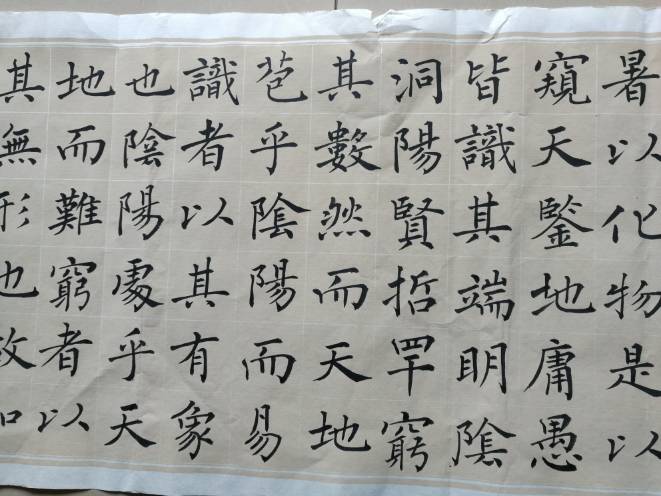 暑以化物是以
窺天鑒地庸愚
皆識其端明陰
洞陽賢哲罕窮
其數然而天地
苞乎陰陽而易
識者以其有象
也陰陽處乎天
地而難窮者以
其無形也故知